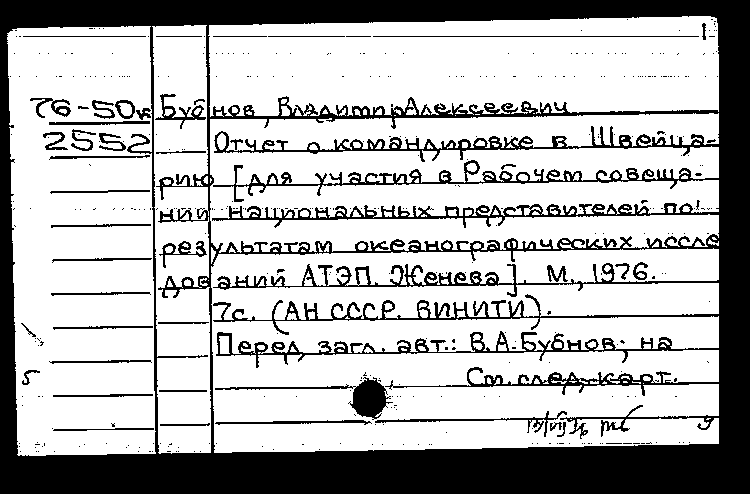 1
76-50к Бубнов, Владимир Алексеевич
2552 Отчет о командировке в Швейца-
рию [для участия в Рабочем совеща-
нии национальных представителей по
результатам океанографических иссле
дований АТЭП. Женева]. М., 1976.
7с. (АН СССР. ВИНИТИ).
Перед загл. авт.: В.А.Бубнов; на
5 См. след. карт.